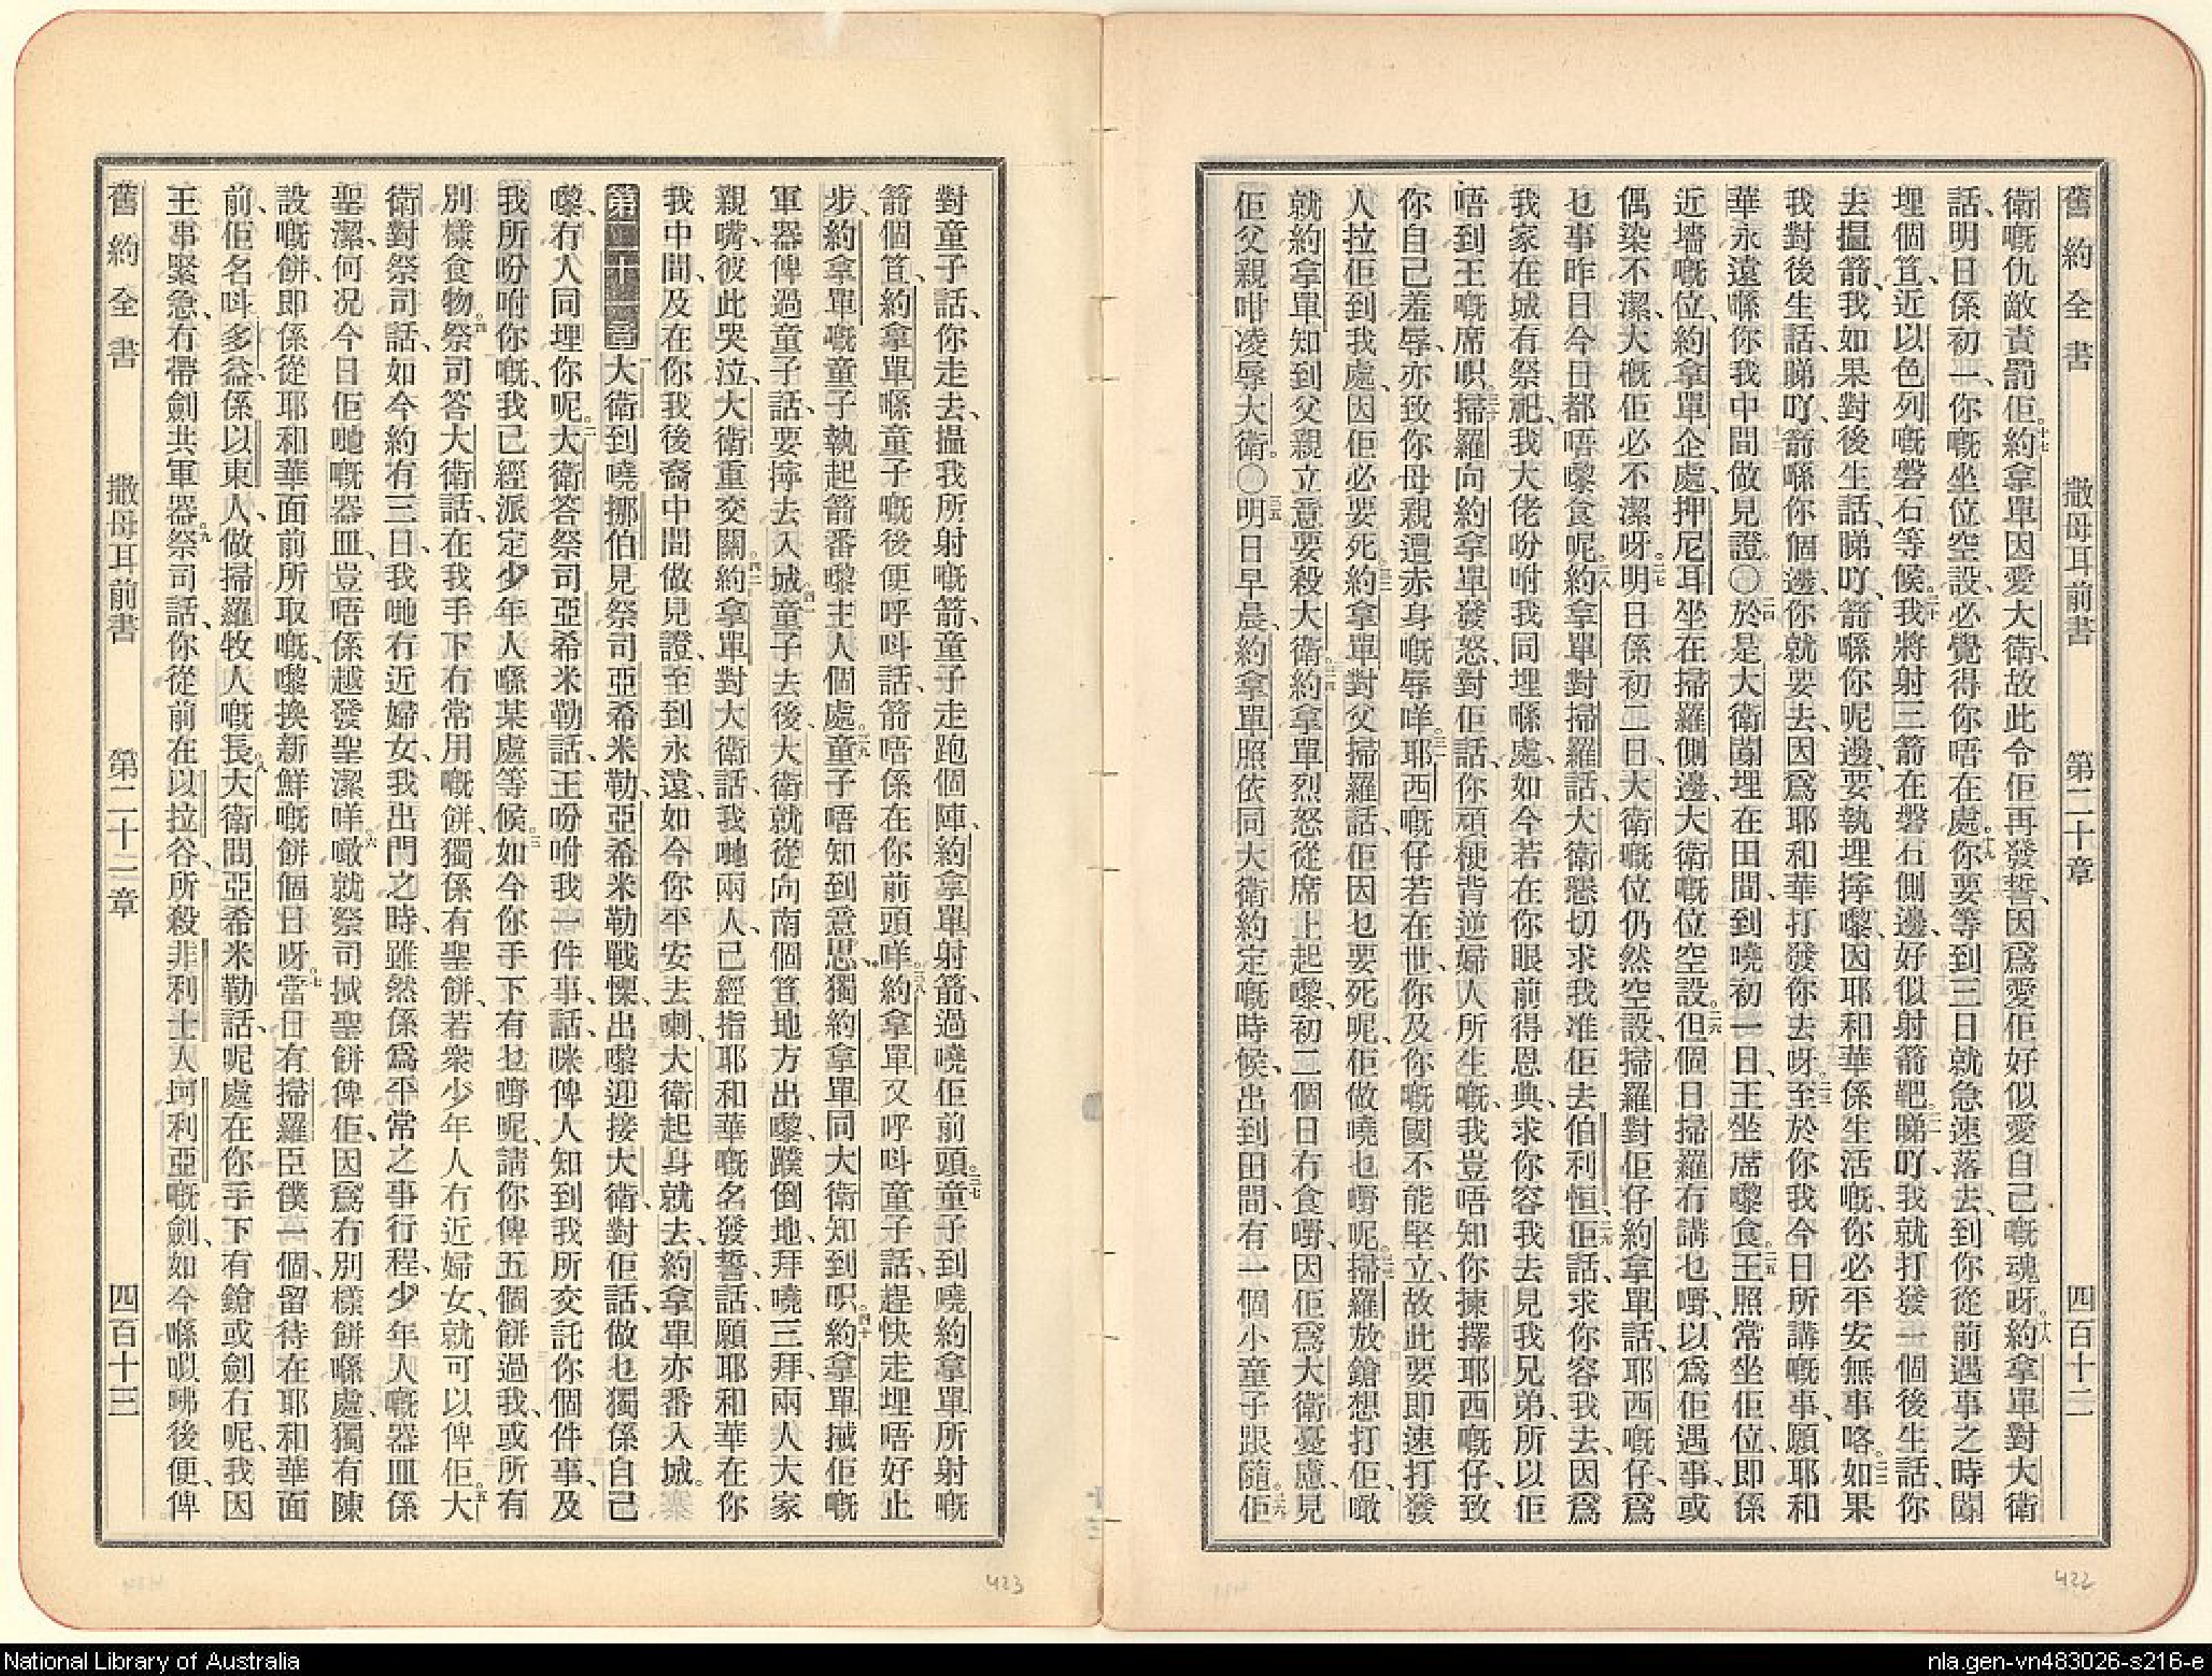 舊約全書 撒母耳前書 第二十章 四百十二
衛嘅仇敵責罰佢。十七約拿單因愛大衛、故此令佢再發誓、因爲愛佢好似愛自己嘅魂呀。十八約拿單對大衛
話、明日係初一、你嘅坐位空設、必覺得你唔在處。十九你要等到三日就急速落去、到你從前遇事之時閉
埋個笪、近以色列嘅磐石等候。二十我將射三箭在磐石側邊、好似射箭靶。二一睇吖、我就打發一個後生話、你
去搵箭、我如果對後生話、睇吖、箭喺你呢邊、要執埋擰嚟、因耶和華係生活嘅、你必平安無事咯。二二如果
我對後生話、睇吖、箭喺你個邊、你就要去、因爲耶和華打發你去呀。二三至於你我今日所講嘅事、願耶和
華永遠喺你我中間做見證。〇二四於是大衛匿埋在田間、到嘵初一日、王坐席嚟食。二五王照常坐佢位、即係
近墻嘅位、約拿單企處、押尼耳坐在掃羅側邊、大衛嘅位空設。二六但個日掃羅冇講乜嘢、以爲佢遇事、或
偶染不潔、大槪佢必不潔呀。二七明日係初二日、大衛嘅位仍然空設、掃羅對佢仔約拿單話、耶西嘅仔、爲
乜事昨日今日都唔嚟食呢。二八約拿單對掃羅話、大衛懇切求我准佢去伯利恒、二九佢話、求你容我去、因爲
我家在城有祭祀、我大佬吩咐我同埋喺處、如今若在你眼前得恩典、求你容我去見我兄弟、所以佢
唔到王嘅席呮。三十掃羅向約拿單發怒、對佢話、你頑梗背逆婦人所生嘅、我豈唔知你揀擇耶西嘅仔、致
你自己羞辱、亦致你母親遭赤身嘅辱咩。三一耶西嘅仔若在世、你及你嘅國不能堅立、故此要即速打發
人拉佢到我處、因佢必要死。三二約拿單對父掃羅話、佢因乜要死呢、佢做嘵乜嘢呢。三三掃羅放鎗想打佢、噉
就約拿單知到父親立意要殺大衛。三四約拿單烈怒從席上起嚟、初二個日冇食嘢、因佢爲大衛憂慮、見
佢父親咁凌辱大衛。〇三五明日早晨、約拿單照依同大衛約定嘅時候、出到田間、有一個小童子跟隨。三六佢
對童子話、你走去、搵我所射嘅箭、童子走跑個陣、約拿單射箭、過嘵佢前頭。三七童子到嘵約拿單所射嘅
箭個笪、約拿單喺童子嘅後便呼呌話、箭唔係在你前頭咩。三八約拿單又呼呌童子話、趕快走埋唔好止
步、約拿單嘅童子執起箭番嚟主人個處。三九童子唔知到意思、獨約拿單同大衛知到呮。四十約拿單搣佢嘅
軍器俾過童子話、要擰去入城。四一童子去後、大衛就從向南個笪地方出嚟、蹼倒地、拜嘵三拜、兩人大家
親嘴、彼此哭泣、大衛重交關。四二約拿單對大衛話、我哋兩人、已經指耶和華嘅名發誓、話、願耶和華在你
我中間、及在你我後裔中間做見證、至到永遠、如今你平安去喇、大衛起身就去、約拿單亦番入城。
第二十一章 一大衛到嘵挪伯見祭司亞希米勒、亞希米勒戰慄、出嚟迎接大衛、對佢話、做乜獨係自己
嚟、冇人同埋你呢。二大衛答祭司亞希米勒話、王吩咐我一件事、話、咪俾人知到我所交託你個件事、及
我所吩咐你嘅、我已經派定少年人喺某處等候。三如今你手下有乜嘢呢、請你俾五個餅過我、或所有
別樣食物。四祭司答大衛話、在我手下冇常用嘅餅、獨係有聖餅、若衆少年人冇近婦女、就可以俾佢。五大
衛對祭司話、如今約有三日、我哋冇近婦女、我出門之時、雖然係爲平常之事行程、少年人嘅器皿係
聖潔、何况今日佢哋嘅器皿、豈唔係越發聖潔咩。六噉就祭司搣聖餅俾佢、因爲冇別樣餅喺處、獨有陳
設嘅餅、即係從耶和華面前所取嘅、嚟換新鮮嘅餅個日呀。七當日有掃羅臣僕一個、留待在耶和華面
前、佢名呌多益、係以東人、做掃羅牧人嘅長。八大衛問亞希米勒話、呢處在你手下有鎗或劍冇呢、我因
王事緊急、冇帶劍共軍器。九祭司話、你從前在以拉谷、所殺非利士人坷利亞嘅劍、如今喺㕽咈後便、俾
舊約全書 撒母耳前書 第二十一章 四百十三
423
422
National Library of Australia
nla.gen-vn483026-s216-e